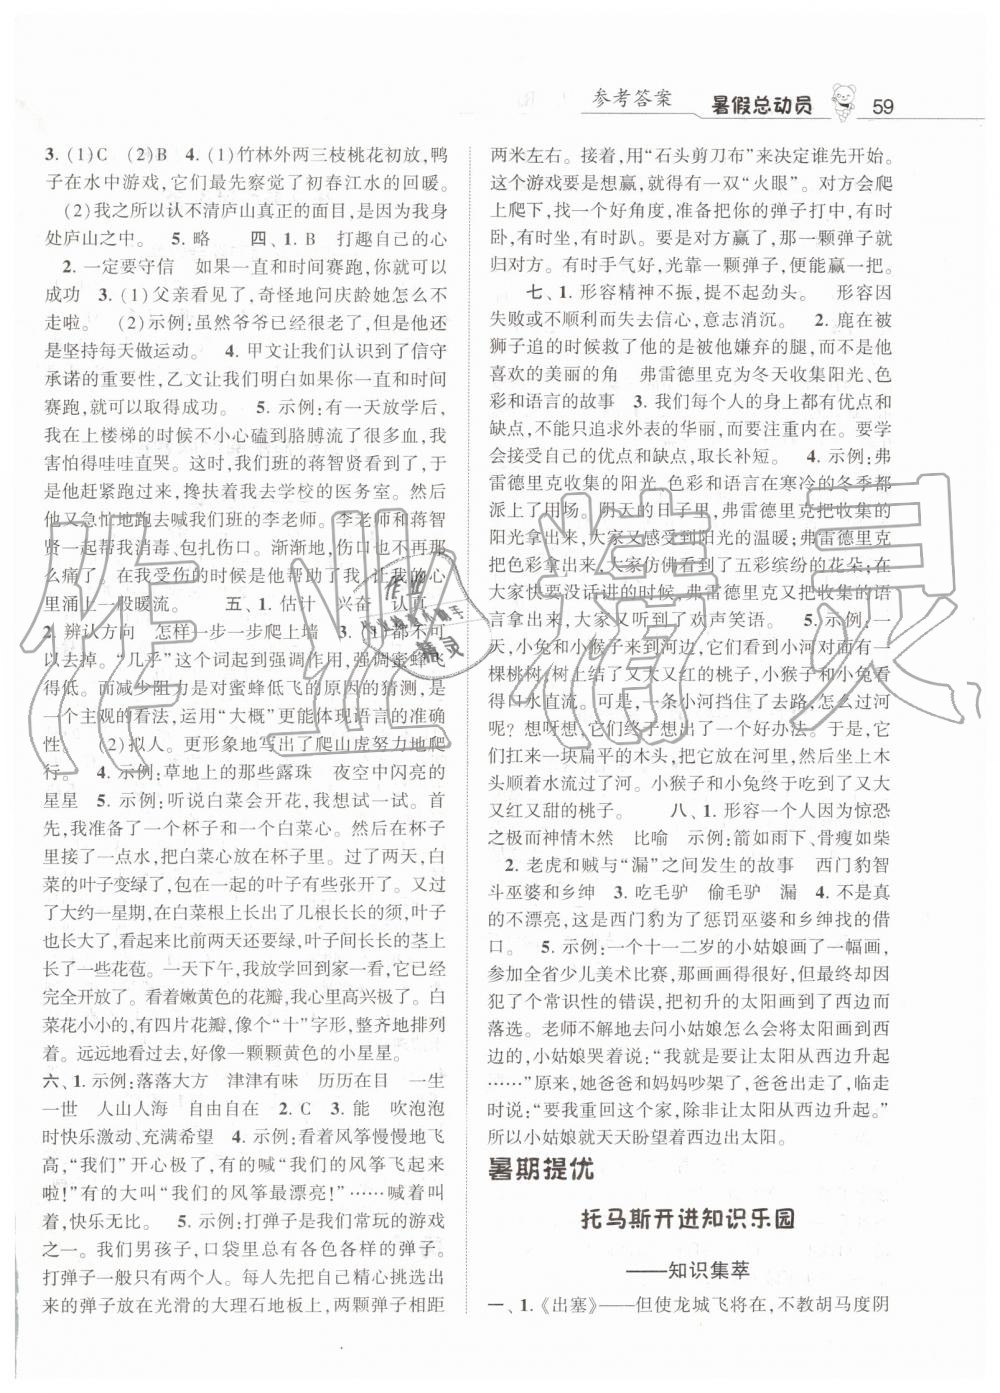 参考答案 暑假总动员 59
3. (1)C (2)B 4. (1)竹林外两三枝桃花初放,鸭
子在水中游戏,它们最先察觉了初春江水的回暖。
(2)我之所以认不清庐山真正的面目,是因为我身
处庐山之中。 5. 略 四、1. B 打趣自己的心
2. 一定要守信 如果一直和时间赛跑,你就可以
成功 3. (1)父亲看见了,奇怪地问庆龄她怎么不
走啦。 (2)示例:虽然爷爷已经很老了,但他还
是坚持每天做运动。 4. 甲文让我们认识到了信守
承诺的重要性,乙文让我们明白如果你一直和时间
赛跑,就可以取得成功。 5. 示例:有一天放学后,
我在上楼梯的时候不小心磕到胳膊流了很多血,我
害怕得哇哇直哭。这时,我们班的蒋智贤看到了,于
是他赶紧跑过来,搀扶着我去学校的医务室。然后
他又急忙地跑去喊我们班的李老师。李老师和蒋智
贤一起帮我消毒、包扎伤口。渐渐地,伤口也不那
么痛了。在我受伤的时候是他帮助了我,我的心
里涌上一股暖流。 五、1. 估计 兴奋 认真
2. 辨认方向 怎样一步一步爬上墙 3. (1)都不可
以去掉。“几乎”这个词起到强调作用,体现蜜蜂飞
得低。而减少阻力是对蜜蜂低飞的原因的猜测,是
一个主观的看法,运用“大概”更能体现语言的准确
性。 (2)拟人。更形象地写出了爬山虎努力地爬
行。 4. 示例:草地上的那些露珠 夜空中闪亮的
星星 5. 示例:听说白菜会开花,我想试一试。首
先,我准备了一个杯子和一个白菜心。然后在杯子
里接了一点水,把白菜心放在杯子里。过了两天,白
菜的叶子变绿了,包在一起的叶子有些张开了。又过
了大约一星期,在白菜根上长了几根长长的须,叶子
也长大了,看起来比前两天还要绿,叶子中间的茎上
长了一些花苞。一天下午,我回到家一看,它已经
完全开放了。看着嫩黄色的花瓣,我心里高兴极了。白
菜花小小的,有四片花瓣,像个“十”字形,整齐地排列
着。远远地看过去,好像一颗颗黄色的小星星。
六、1. 示例:落落大方 津津有味 历历在目 一生
一世 人山人海 自由自在 2. C 3. 能 吹泡泡
时快乐激动、充满希望 4. 示例:看着风筝慢慢地飞
高,“我们”开心极了,有的喊“我们的风筝飞起来
啦!”有的大叫“我们的风筝最漂亮!”……喊着叫
着,快乐无比。 5. 示例:打弹子是我们常玩的游戏
之一。我们男孩子,口袋里总有各色各样的弹子。
打弹子一般只有两个人。每人先把自己精心挑选出
来的弹子放在光滑的大理石地板上,两颗弹子相距
两米左右。接着,用“石头剪刀布”来决定谁先开始。
这个游戏要是想赢,就得有一双“火眼”。有时会爬
上爬下,找一个好角度,准备把你的弹子打中,有时
卧,有时坐,有时趴。要是对方赢了,那一颗弹子就
归对方。有时手气好,光靠一颗弹子,能赢一把。
七、1. 形容精神不振,提不起劲头。 形容因
失败或不顺利而失去信心,意志消沉。 2. 鹿在被
狮子追的时候救了他的是被他嫌弃的腿,而不是他
喜欢的美丽的角 弗雷德里克为冬天收集阳光、色
彩和语言的故事 3. 我们每个人的身上都有优点和
缺点,不能只追求外表的华丽,而要注重内在。要学
会接受自己的优点和缺点,取长补短。 4. 示例:弗
雷德里克收集的阳光、色彩和语言在寒冷的冬季都
派上了用场。阴天的日子里,弗雷德里克把收集的
阳光拿出来,大家又感受到阳光的温暖;弗雷德里克
把收集的颜色拿出来,大家仿佛看到了五彩缤纷的花朵;在大家
快要没话讲的时候,弗雷德里克把收集的语
言拿出来,大家又听到了欢声笑语。 5. 示例:一
天,小兔和小猴子来到河边,它们看到河对面有一
棵桃树,树上结了又大又红的桃子,小猴子和小兔看
得口水直流。可是,一条小河挡住了去路,怎么过河
呢? 想呀想,它们终于想出了一个好办法。于是,它
们扛来一块扁平的木头,把它放在河里,然后坐上木
头顺着水流过了河。小猴子和小兔一起吃到了又大
又红又甜的桃子。 八、1. 形容一个人因为惊恐
之极而神情木然 比喻 示例:箭如雨下、骨瘦如柴
2. 老虎和贼与“漏”之间发生的故事 西门豹智
斗巫婆和乡绅 3. 吃毛驴 偷毛驴 漏 4. 不是真
的不漂亮,这是西门豹为了惩罚巫婆和乡绅找的借
口。 5. 示例:一个十一二岁的小姑娘画了一幅画,
参加全省少儿美术比赛,那画画得很好,但是却因
犯了个常识性的错误,把初升的太阳画到了西边而
落选。老师不解地去问小姑娘怎么会将太阳画到西
边,小姑娘哭着说:“我是就是要让太阳从西边升起
……”原来,她爸爸和妈妈吵架了,爸爸出走了,走
时说:“要我重回这个家,除非让太阳从西边升起。”
所以小姑娘就天天盼望着西边出太阳。
暑期提优
托马斯开进知识乐园
——知识集萃
一、1.《出塞》——但使龙城飞将在,不教胡马度阴
作业精灵